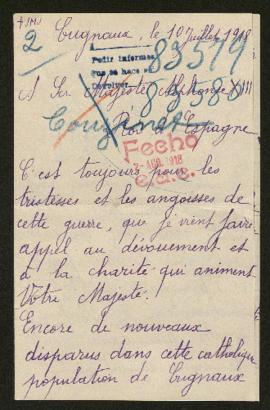 Cugnaux, le 10 Juillet 1918
2
83519
A
Pedir informes
que se hace en
devolver.
83580
A Sa Majesté Alphonse XIII
Roi d'Espagne
Fecho
2-AGO.1918
C'est toujours pour les
tristesses et les angoisses de
cette guerre, que je vient faire
appel au dévouement et
à la charité qui animent
Votre Majesté.
Encore de nouveaux
disparus dans cette catholique
population de Cugnaux